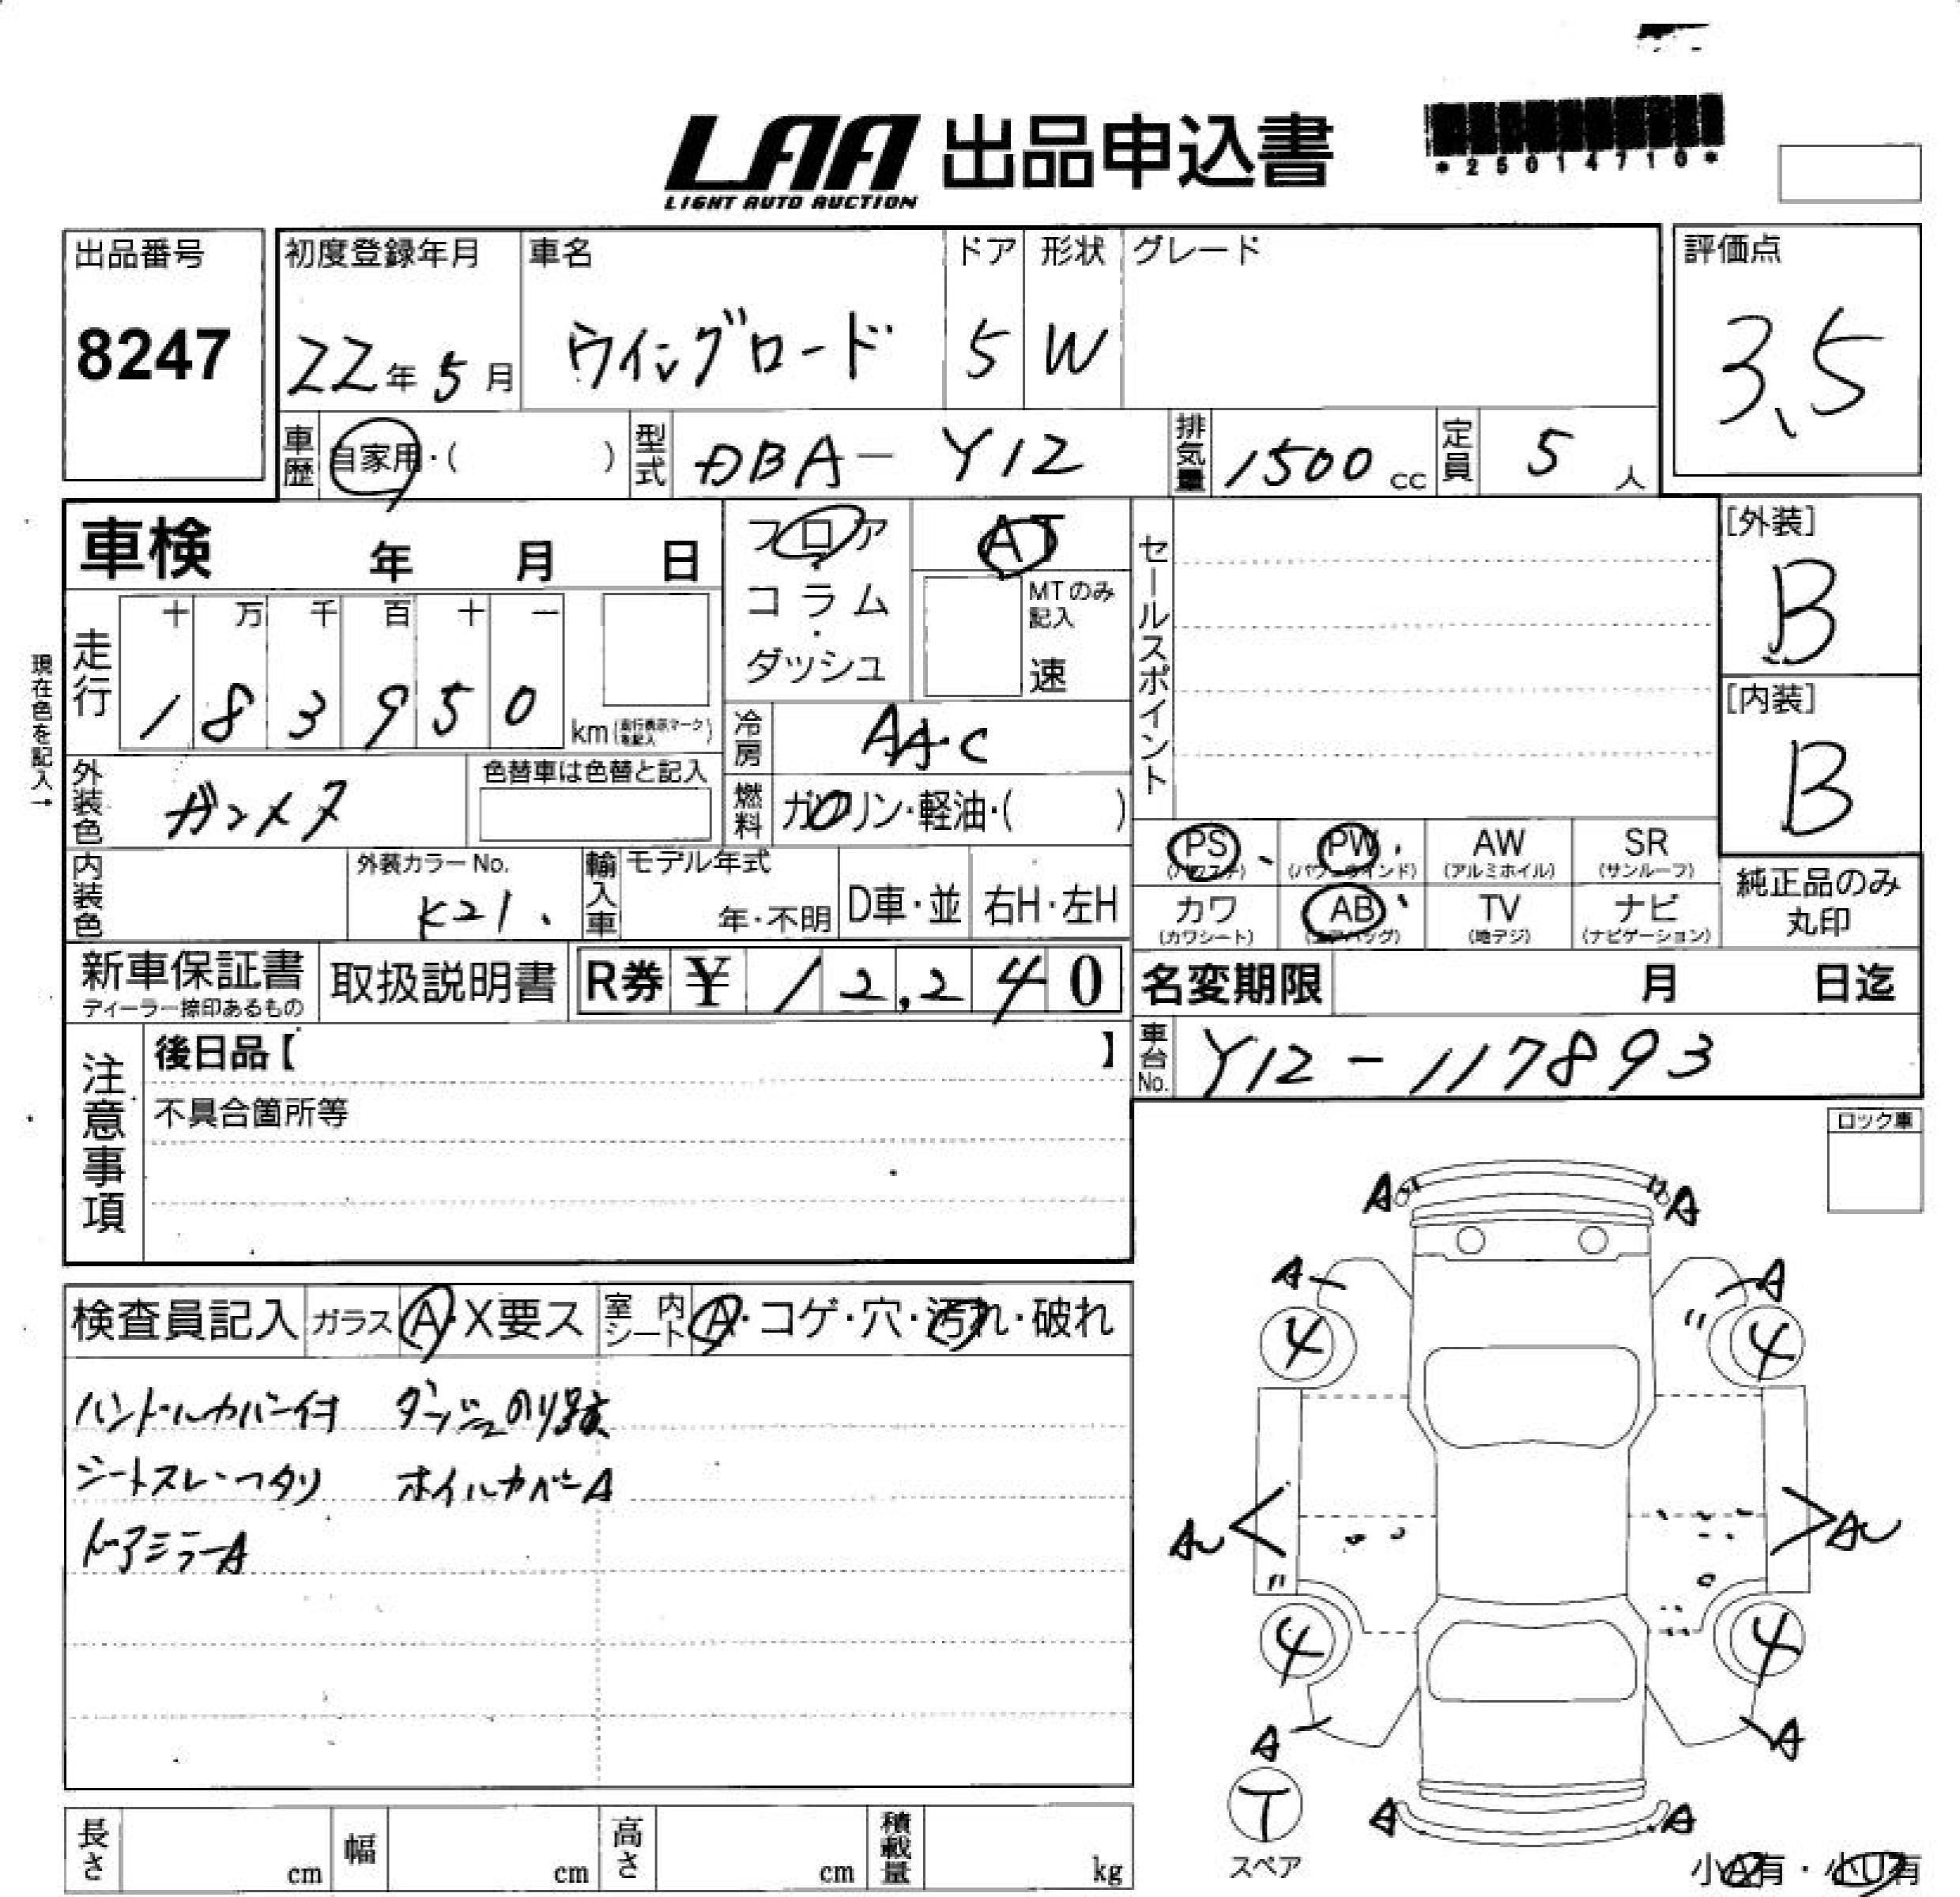 LAA 出品申込書
LIGHT AUTO AUCTION
*25014710*
出品番号 初度登録年月 車名 ドア 形状 グレード 評価点
8247 22年5月 ウイングロード 5 W 3.5
車歴 自家用・( ) 型式 DBA-Y12 排気量 1500cc 定員 5人
車検 年 月 日 フロア・コラム・ダッシュ AT
MTのみ記入 速
セールスポイント
[外装] B
[内装] B
現在色を記入→
走行 十 万 千 百 十 一
1 8 3 9 5 0 km(走行表示マークを記入)
冷房 AAC
外装色 ガンメタ 色替車は色替と記入
燃料 ガソリン・軽油・( )
PS(パワステ) PW(パワーウインド) AW(アルミホイル) SR(サンルーフ)
カワ(カワシート) AB(エアバッグ) TV(地デジ) ナビ(ナビゲーション)
純正品のみ丸印
内装色 外装カラーNo. K21 輸入車 モデル年式 年・不明 D車・並 右H・左H
新車保証書 ディーラー捺印あるもの 取扱説明書 R券 ¥ 12,240 名変期限 月 日迄
車台No. Y12-117893
注意事項 後日品【 】
不具合箇所等
ロック車
検査員記入 ガラス A・X要ス 室内シート A・コゲ・穴・汚れ・破れ
ハンドルカバー付 ダッシュのり跡
シートスレ・ヘタリ ホイルカバーA
ドアミラーA
A A
A A
4 〃 4
AU AU
〃
4 4
A A
T A A
スペア
小A有・小U有
長さ cm 幅 cm 高さ cm 積載量 kg